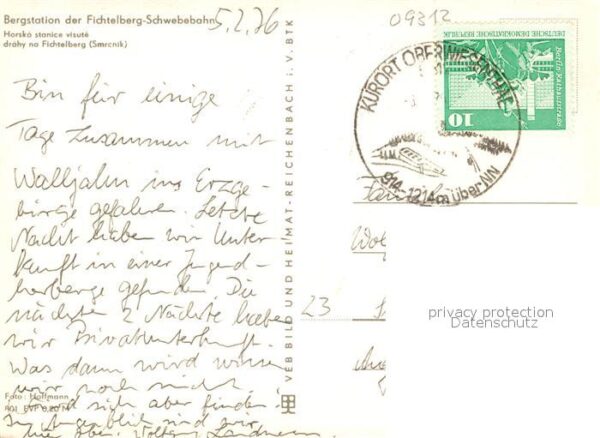 Bergstation der Fichtelberg-Schwebebahn
Horská stanice visuté
dráhy na Fichtelberg (Smrcnik)
5.2.76
09312
Bin für einige
Tage zusammen mit
ins Erzge-
birge gefahren. Letzte
Nacht haben wir Unter-
kunft in einer Jugend-
herberge gefunden. Die
nächsten 2 Nächte haben
wir Privatunterkunft.
Was dann wird wissen
wir noch nicht.
sich aber finden.
Im Augenblick sind wir
hier oben. Wolfgang
Foto: Hoffmann
EVP 0,20 M
VEB BILD UND HEIMAT · REICHENBACH i. V. BTK
KURORT OBERWIESENTHAL
914-1214m über NN
DEUTSCHE DEMOKRATISCHE REPUBLIK
10
Familie
23
privacy protection
Datenschutz